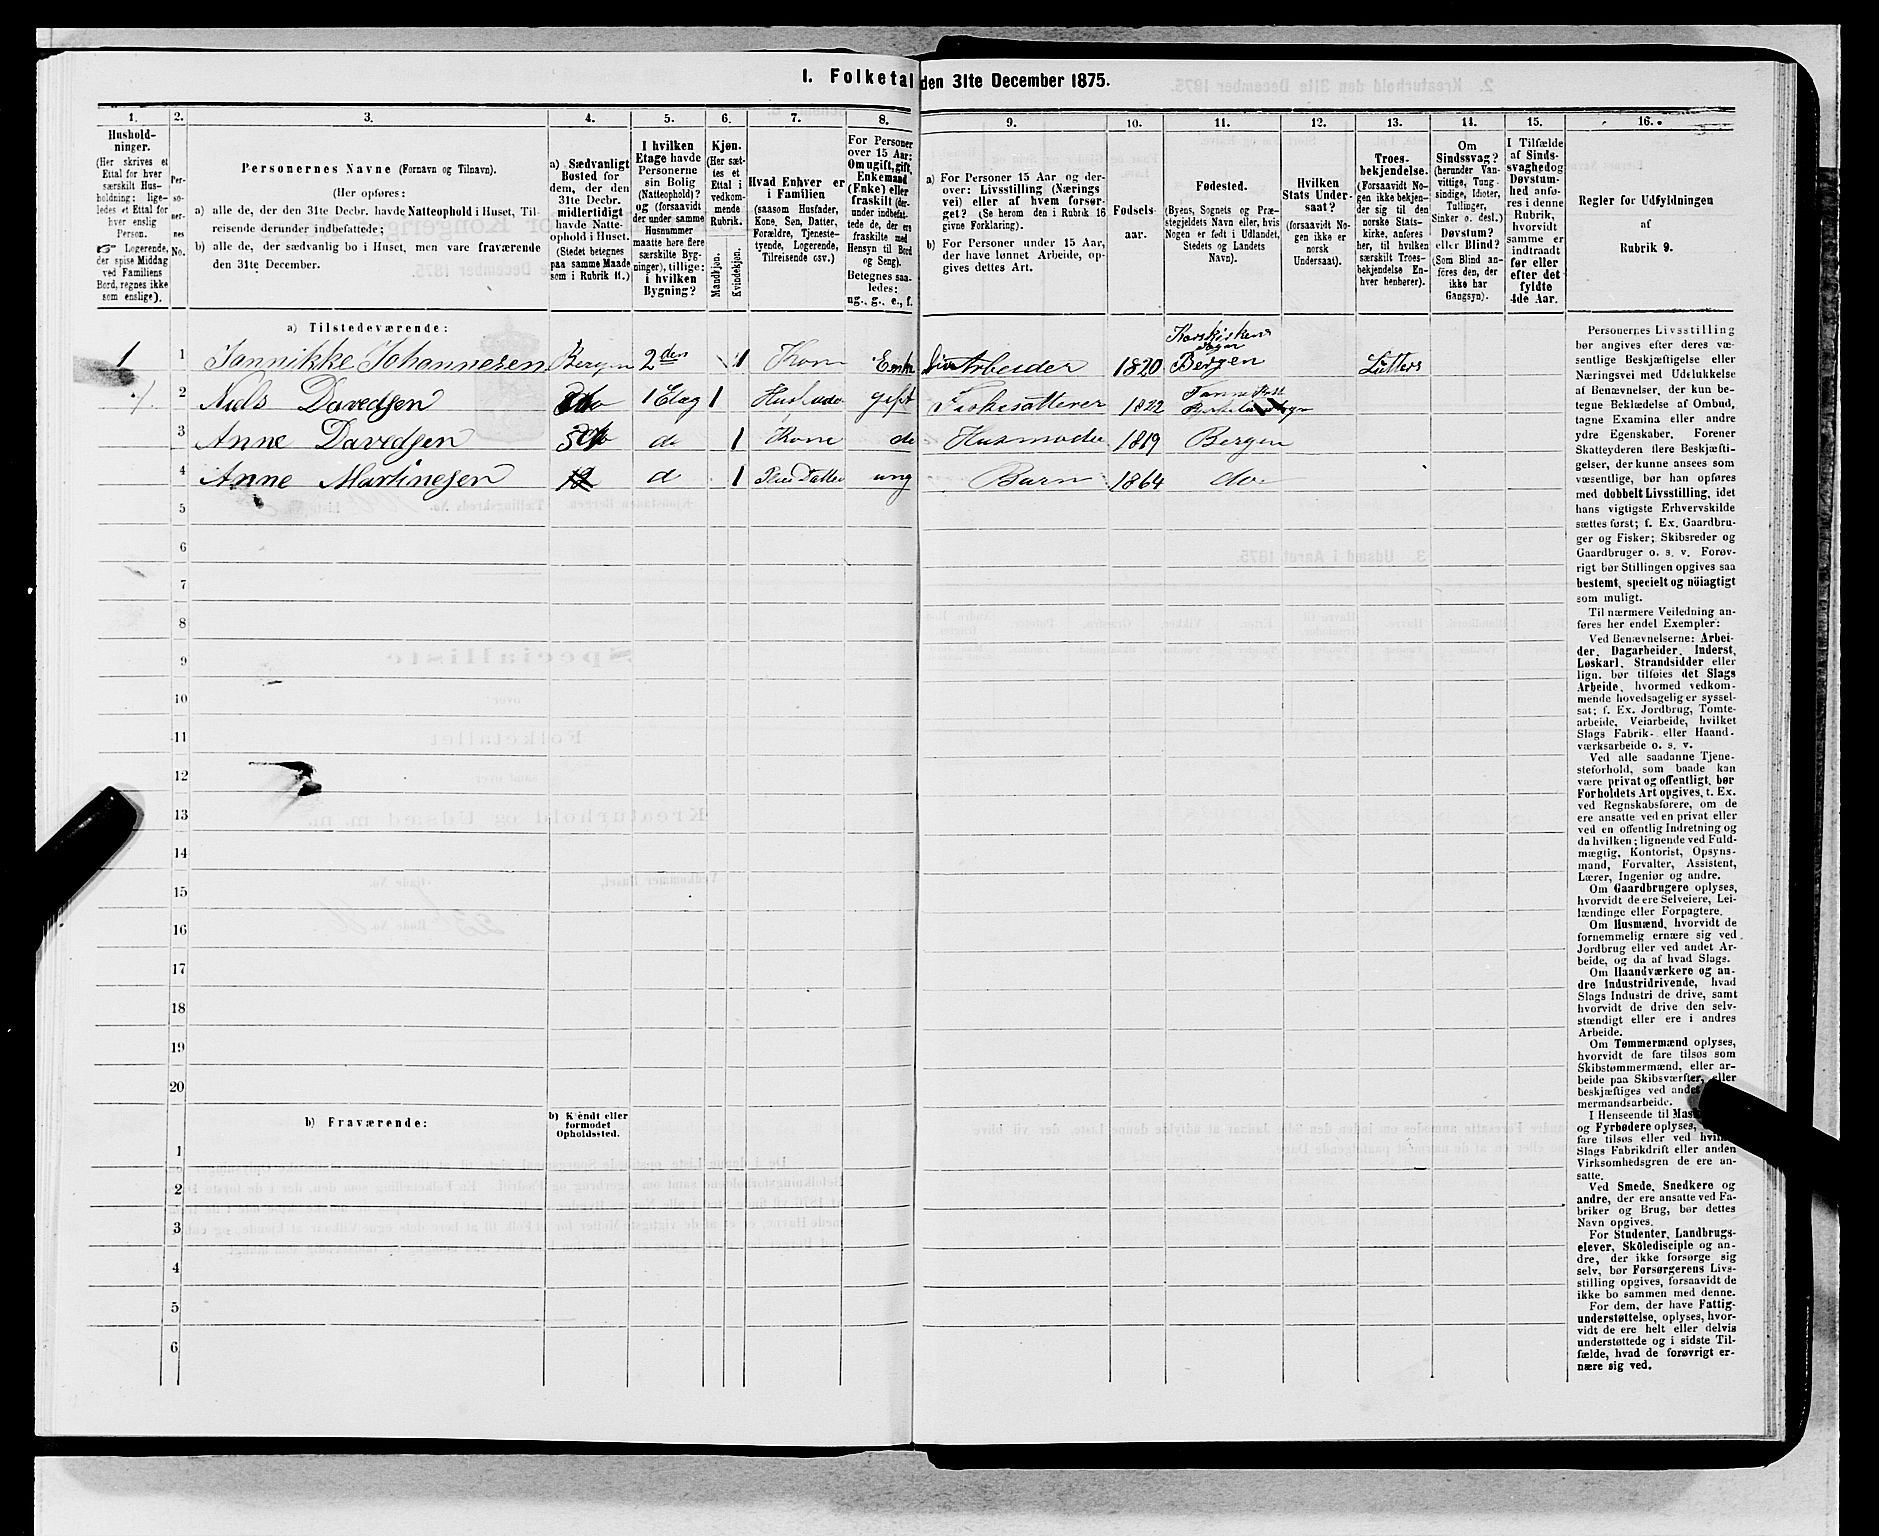 1. Folketal den 31te December 1875.
1.
Hushold-
ninger.
(Her skrives et
Ettal for hver
særskilt Hus-
holdning; lige-
ledes et Ettal for
hver enslig
Person.
☞ Logerende,
der spise Middag
ved Familiens
Bord, regnes ikke
som enslige).
2.
Per-
so-
ner-
nes
No.
3.
Personernes Navne (Fornavn og Tilnavn).
(Her opføres:
a) alle de, der den 31te Decbr. havde Natteophold i Huset, Til-
reisende derunder indbefattede;
b) alle de, der sædvanlig bo i Huset, men vare fraværende
den 31te December.
4.
a) Sædvanligt
Bosted for
dem, der den
31te Decbr.
midlertidigt
havde Natte-
ophold i Huset.
(Stedet betegnes
paa samme Maade
som i Rubrik 11.)
5.
I hvilken
Etage havde
Personerne
sin Bolig
(Natteophold)?
og (forsaavidt
der under samme
Husnummer
maatte høre flere
særskilte Byg-
ninger), tillige:
i hvilken
Bygning?
6.
Kjøn.
(Her sæt-
tes et
Ettal i
vedkom-
mende
Rubrik.
Mandkjøn.
Kvindekjøn.
7.
Hvad Enhver er
i Familien
(saasom Husfader,
Kone, Søn, Datter,
Forældre, Tjeneste-
tyende, Logerende,
Tilreisende osv.)
8.
For Personer
over 15 Aar:
Om ugift, gift,
Enkemand
(Enke) eller
fraskilt (der-
under indbefat-
tede de, der ere
fraskilte med
Hensyn til Bord
og Seng).
Betegnes saa-
ledes:
ug., g., e., f.
9.
a) For Personer 15 Aar og der-
over: Livsstilling (Nærings
vei) eller af hvem forsør-
get? (Se herom den i Rubrik 16
givne Forklaring).
b) For Personer under 15 Aar,
der have lønnet Arbeide, op-
gives dettes Art.
10.
Fødsels-
aar.
11.
Fødested.
(Byens, Sognets og Præ-
stegjeldets Navn eller, hvis
Nogen er født i Udlandet,
Stedets og Landets
Navn).
12.
Hvilken
Stats Under-
saat?
(forsaavidt No-
gen ikke er
norsk
Undersaat).
13.
Troes-
bekjendelse.
(Forsaavidt No-
gen ikke bekjen-
der sig til den
norske Stats-
kirke, anføres
her, til hvilken
særskilt Troes-
bekjendelse En-
hver henhører).
14.
Om
Sindssvag?
(herunder Van-
vittige, Tung-
sindige, Idioter,
Tullinger,
Sinker o. desl.)
Døvstum?
eller Blind?
(Som Blind an-
føres den, der
ikke har
Gangsyn).
15.
I Tilfælde
af Sinds-
svaghed og
Døvstum-
hed anfø-
res i denne
Rubrik,
hvorvidt
samme er
indtraadt
før eller
efter det
fyldte
4de Aar.
16.
Regler for Udfyldningen
af
Rubrik 9.
a) Tilstedeværende:
1 1 Jannikke Johannesen Bergen 2den 1 Kone Enke Arbeider 1820 Korskirkens Sogn Bergen Lutters
2 Niels Davedsen 1 Etag 1 Husfader gift 1822
3 Anne Davedsen do d 1 Kone do Husmoder 1819 Bergen
4 Anne Martinesen d 1 Pleie Datter ung Barn 1864 do
5
6
7
8
9
10
11
12
13
14
15
16
17
18
19
20
b) Fraværende:
b) Kjendt eller
formodet
Opholdssted.
1
2
3
4
5
6
Personernes Livsstilling
bør angives efter deres væ-
sentlige Beskjæftigelse eller
Næringsvei med Udelukkelse
af Benævnelser, der kun be-
tegne Beklædelse af Ombud,
tagne Examina eller andre
ydre Egenskaber. Forener
Skatteyderen flere Beskjæfti-
gelser, der kunne ansees som
væsentlige, bør han opføres
med dobbelt Livsstilling, idet
hans vigtigste Erhvervskilde
sættes først; f. Ex. Gaardbru-
ger og Fisker; Skibsreder og
Gaardbruger o. s. v. Forøv-
rigt bør Stillingen opgives saa
bestemt, specielt og nöiagtigt
som muligt.
Til nærmere Veiledning an-
føres her endel Exempler:
Ved Benævnelserne: Arbei-
der, Dagarbeider, Inderst,
Løskarl, Strandsidder eller
lign. bør tilføies det Slags
Arbeide, hvormed vedkom-
mende hovedsagelig er syssel-
sat; f. Ex. Jordbrug, Tomte-
arbeide, Veiarbeide, hvilket
Slags Fabrik- eller Haand-
værksarbeide o. s. v.
Ved alle saadanne Tjene-
steforhold, som baade kan
være privat og offentligt, bør
Forholdets Art opgives, t. Ex.
ved Regnskabsførere, om de
ere ansatte ved en privat eller
ved en offentlig Indretning og
da hvilken; lignende ved Fuld-
mægtig, Kontorist, Opsyns-
mand, Forvalter, Assistent,
Lærer, Ingeniør og andre.
Om Gaardbrugere oplyses,
hvorvidt de ere Selveiere, Lei-
lændinge eller Forpagtere.
Om Husmænd, hvorvidt de
fornemmelig ernære sig ved
Jordbrug eller ved andet Ar-
beide, og da af hvad Slags.
Om Haandværkere og an-
dre Industridrivende, hvad
Slags Industri de drive, samt
hvorvidt de drive den selv-
stændigt eller ere i andres
Arbeide.
Om Tømmermænd oplyses,
hvorvidt de fare tilsøs som
Skibstømmermænd, eller ar-
beide paa Skibsværfter, eller
beskjæftiges ved
mermandsarbeide.
I Henseende til
og Fyrbødere oplyses,
fare tilsøs eller ved
Slags Fabrikdrift eller anden
Virksomhedsgren de ere an-
satte.
Ved Smede, Snedkere og
andre, der ere ansatte ved Fa-
briker og Brug, bør dettes
Navn opgives.
For Studenter, Landbrugs-
elever, Skôledisciple og an-
dre, der ikke forsørge sig
selv, bør Forsørgerens Livs-
stilling opgives, forsaavidt de
ikke bo sammen med denne.
For dem, der have Fattig-
understøttelse, oplyses, hvor-
vidt de ere helt eller delvis
understøttede og i sidste Til-
fælde, hvad de forøvrigt er-
nære sig ved.